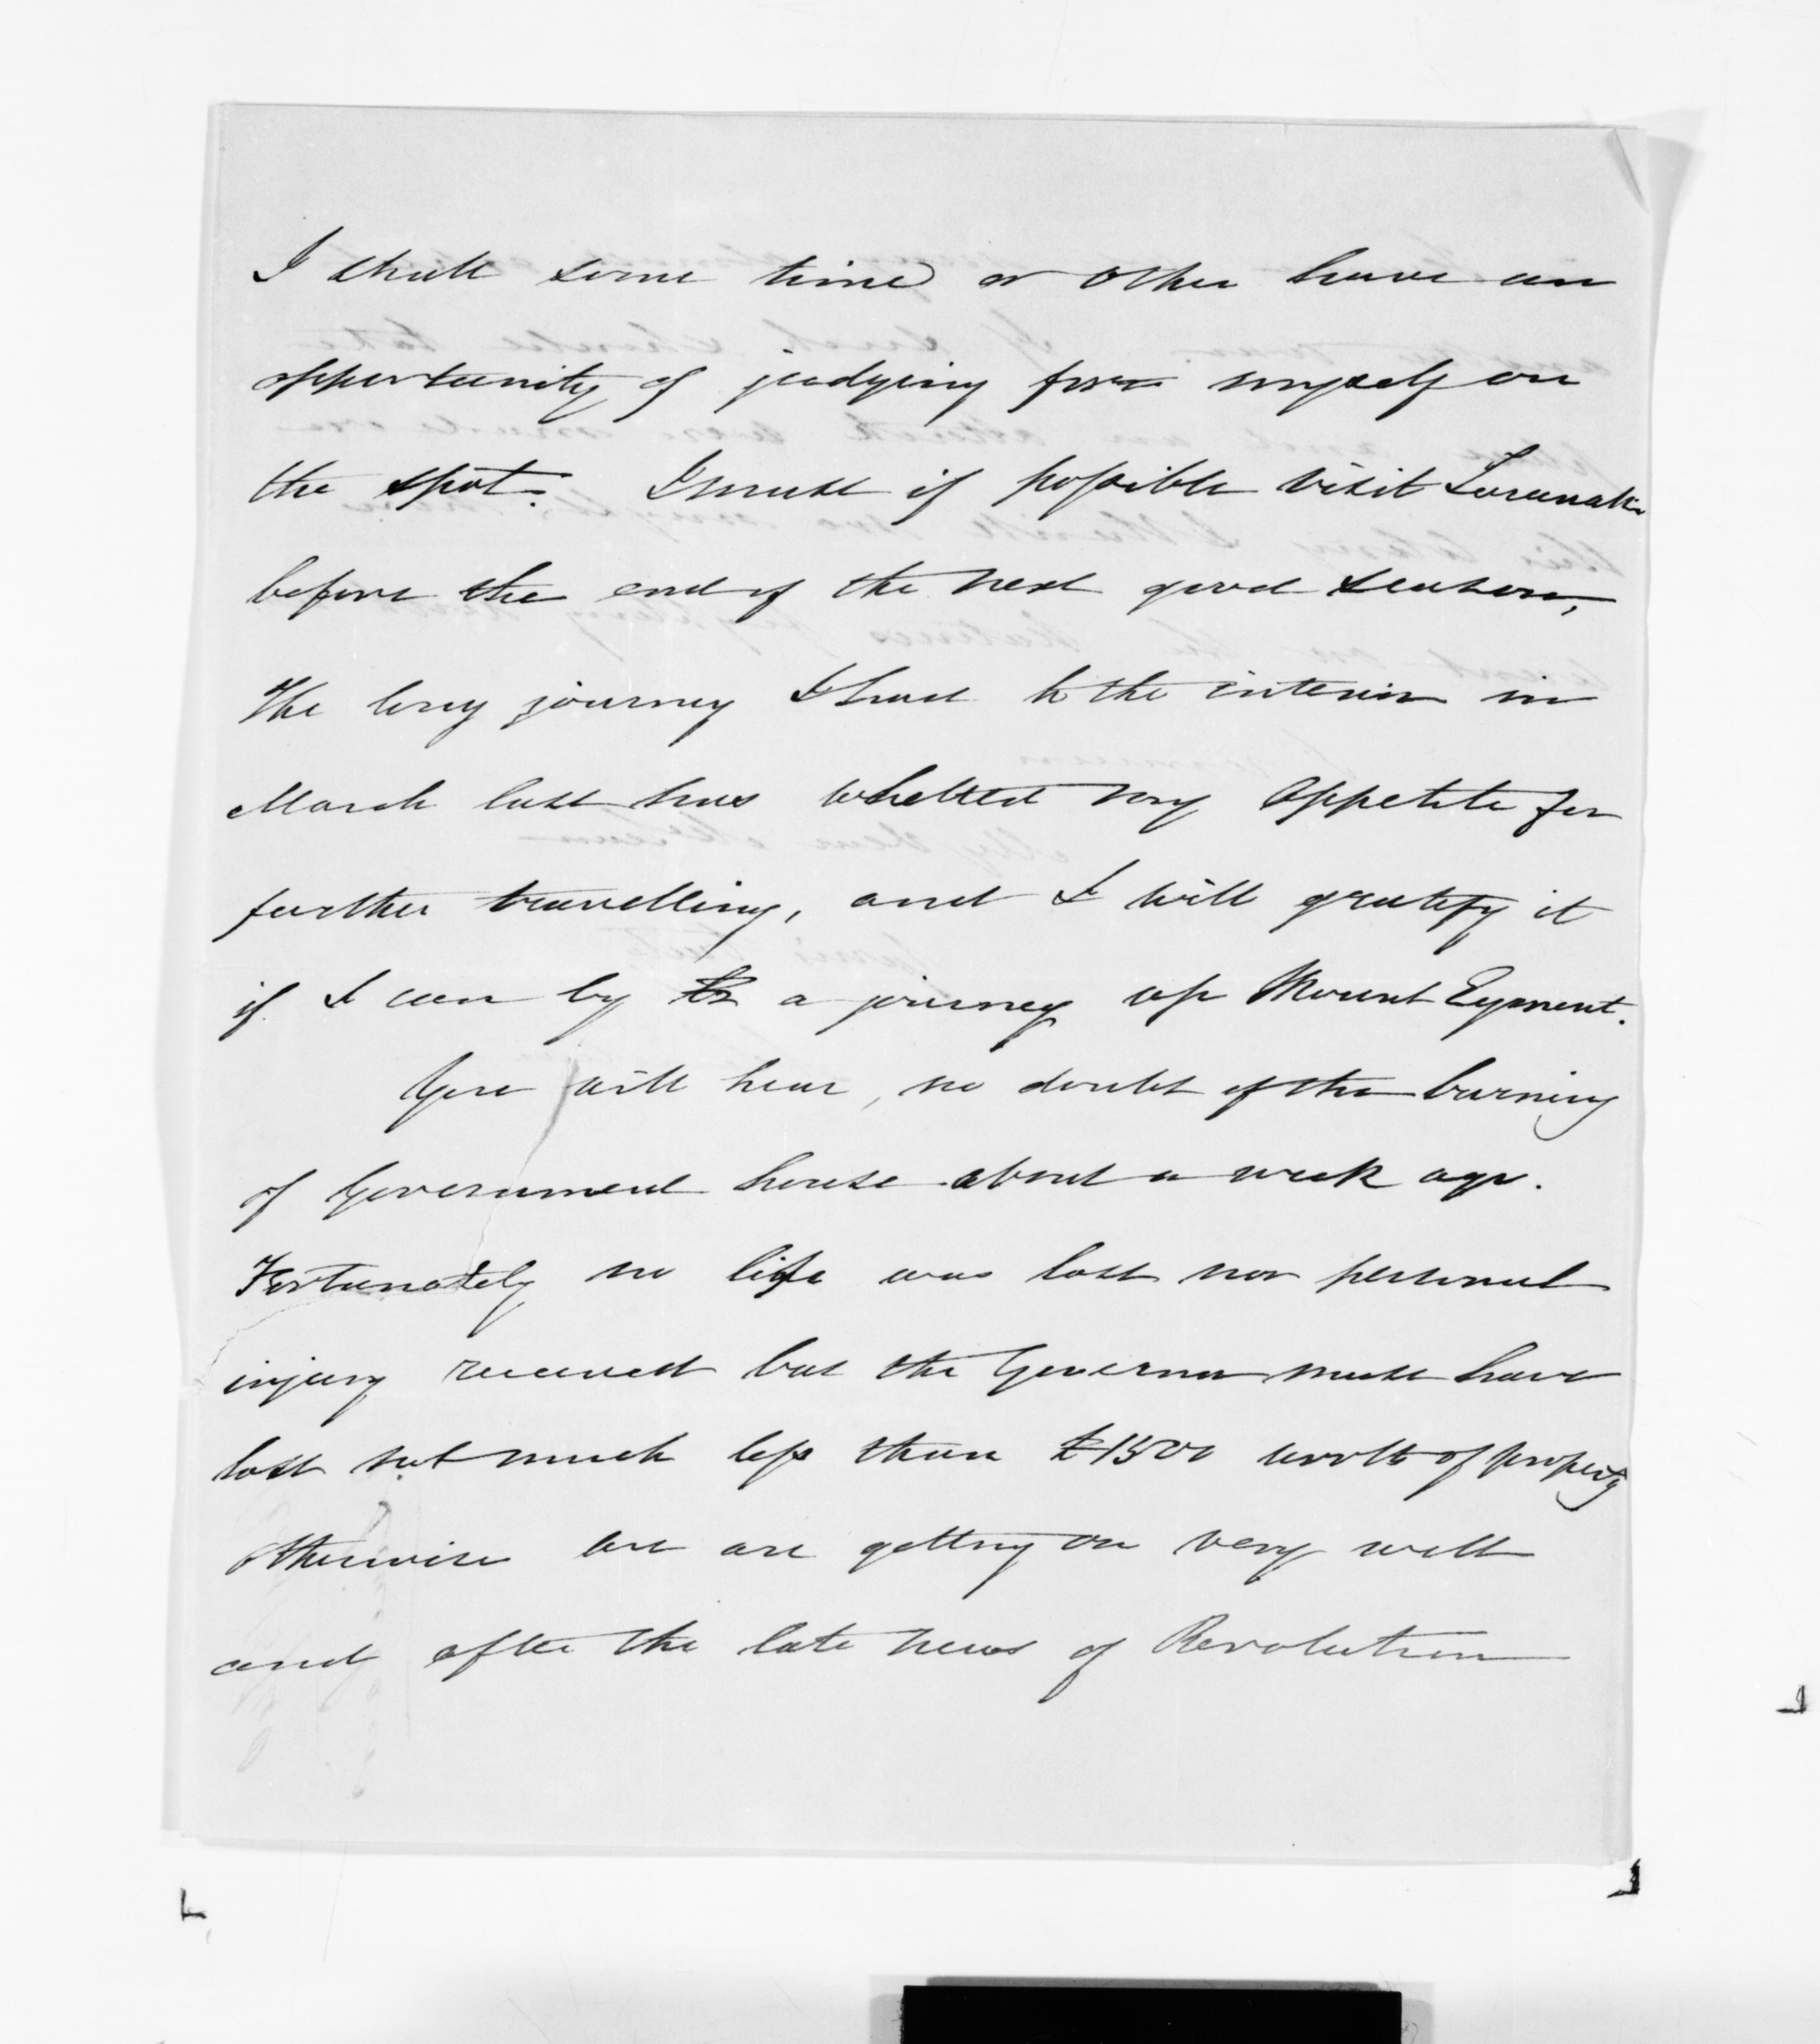 I shall some time or other have an
opportunity of judging for myself on
the spot. I must if possible visit Taranaki
before the end of the next good season,
The long journey I had to the interior in
March last has whetted my appetite for
further travelling, and I will gratify it
if I can by a journey up Mount Egmont.
You will hear, no doubt of the burning
of Government house about a week ago.
Fortunately no life was lost nor personal
injury received but the Governor must have
lost not much less than £1500 worth of property
otherwise we are getting on very well
and after the late news of Revolution